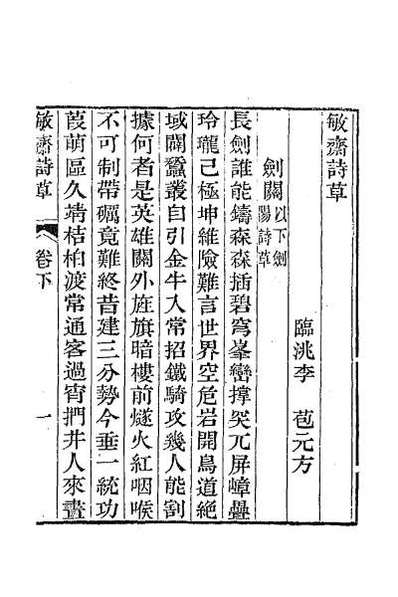 敏齋詩草
臨洮李 苞元方
劍閣 以下劍陽詩草
長劍誰能鑄森森插碧穹峯巒撐突兀屏嶂疊
玲瓏已極坤維險難言世界空危岩開鳥道絕
域闢蠶叢自引金牛入常招鐵騎攻幾人能割
據何者是英雄關外旌旗暗樓前燧火紅咽喉
不可制帶礪竟難終昔建三分勢今垂一統功
葭萌區久靖桔柏渡常通客過宵捫井人來晝
敏齋詩草 卷下 一